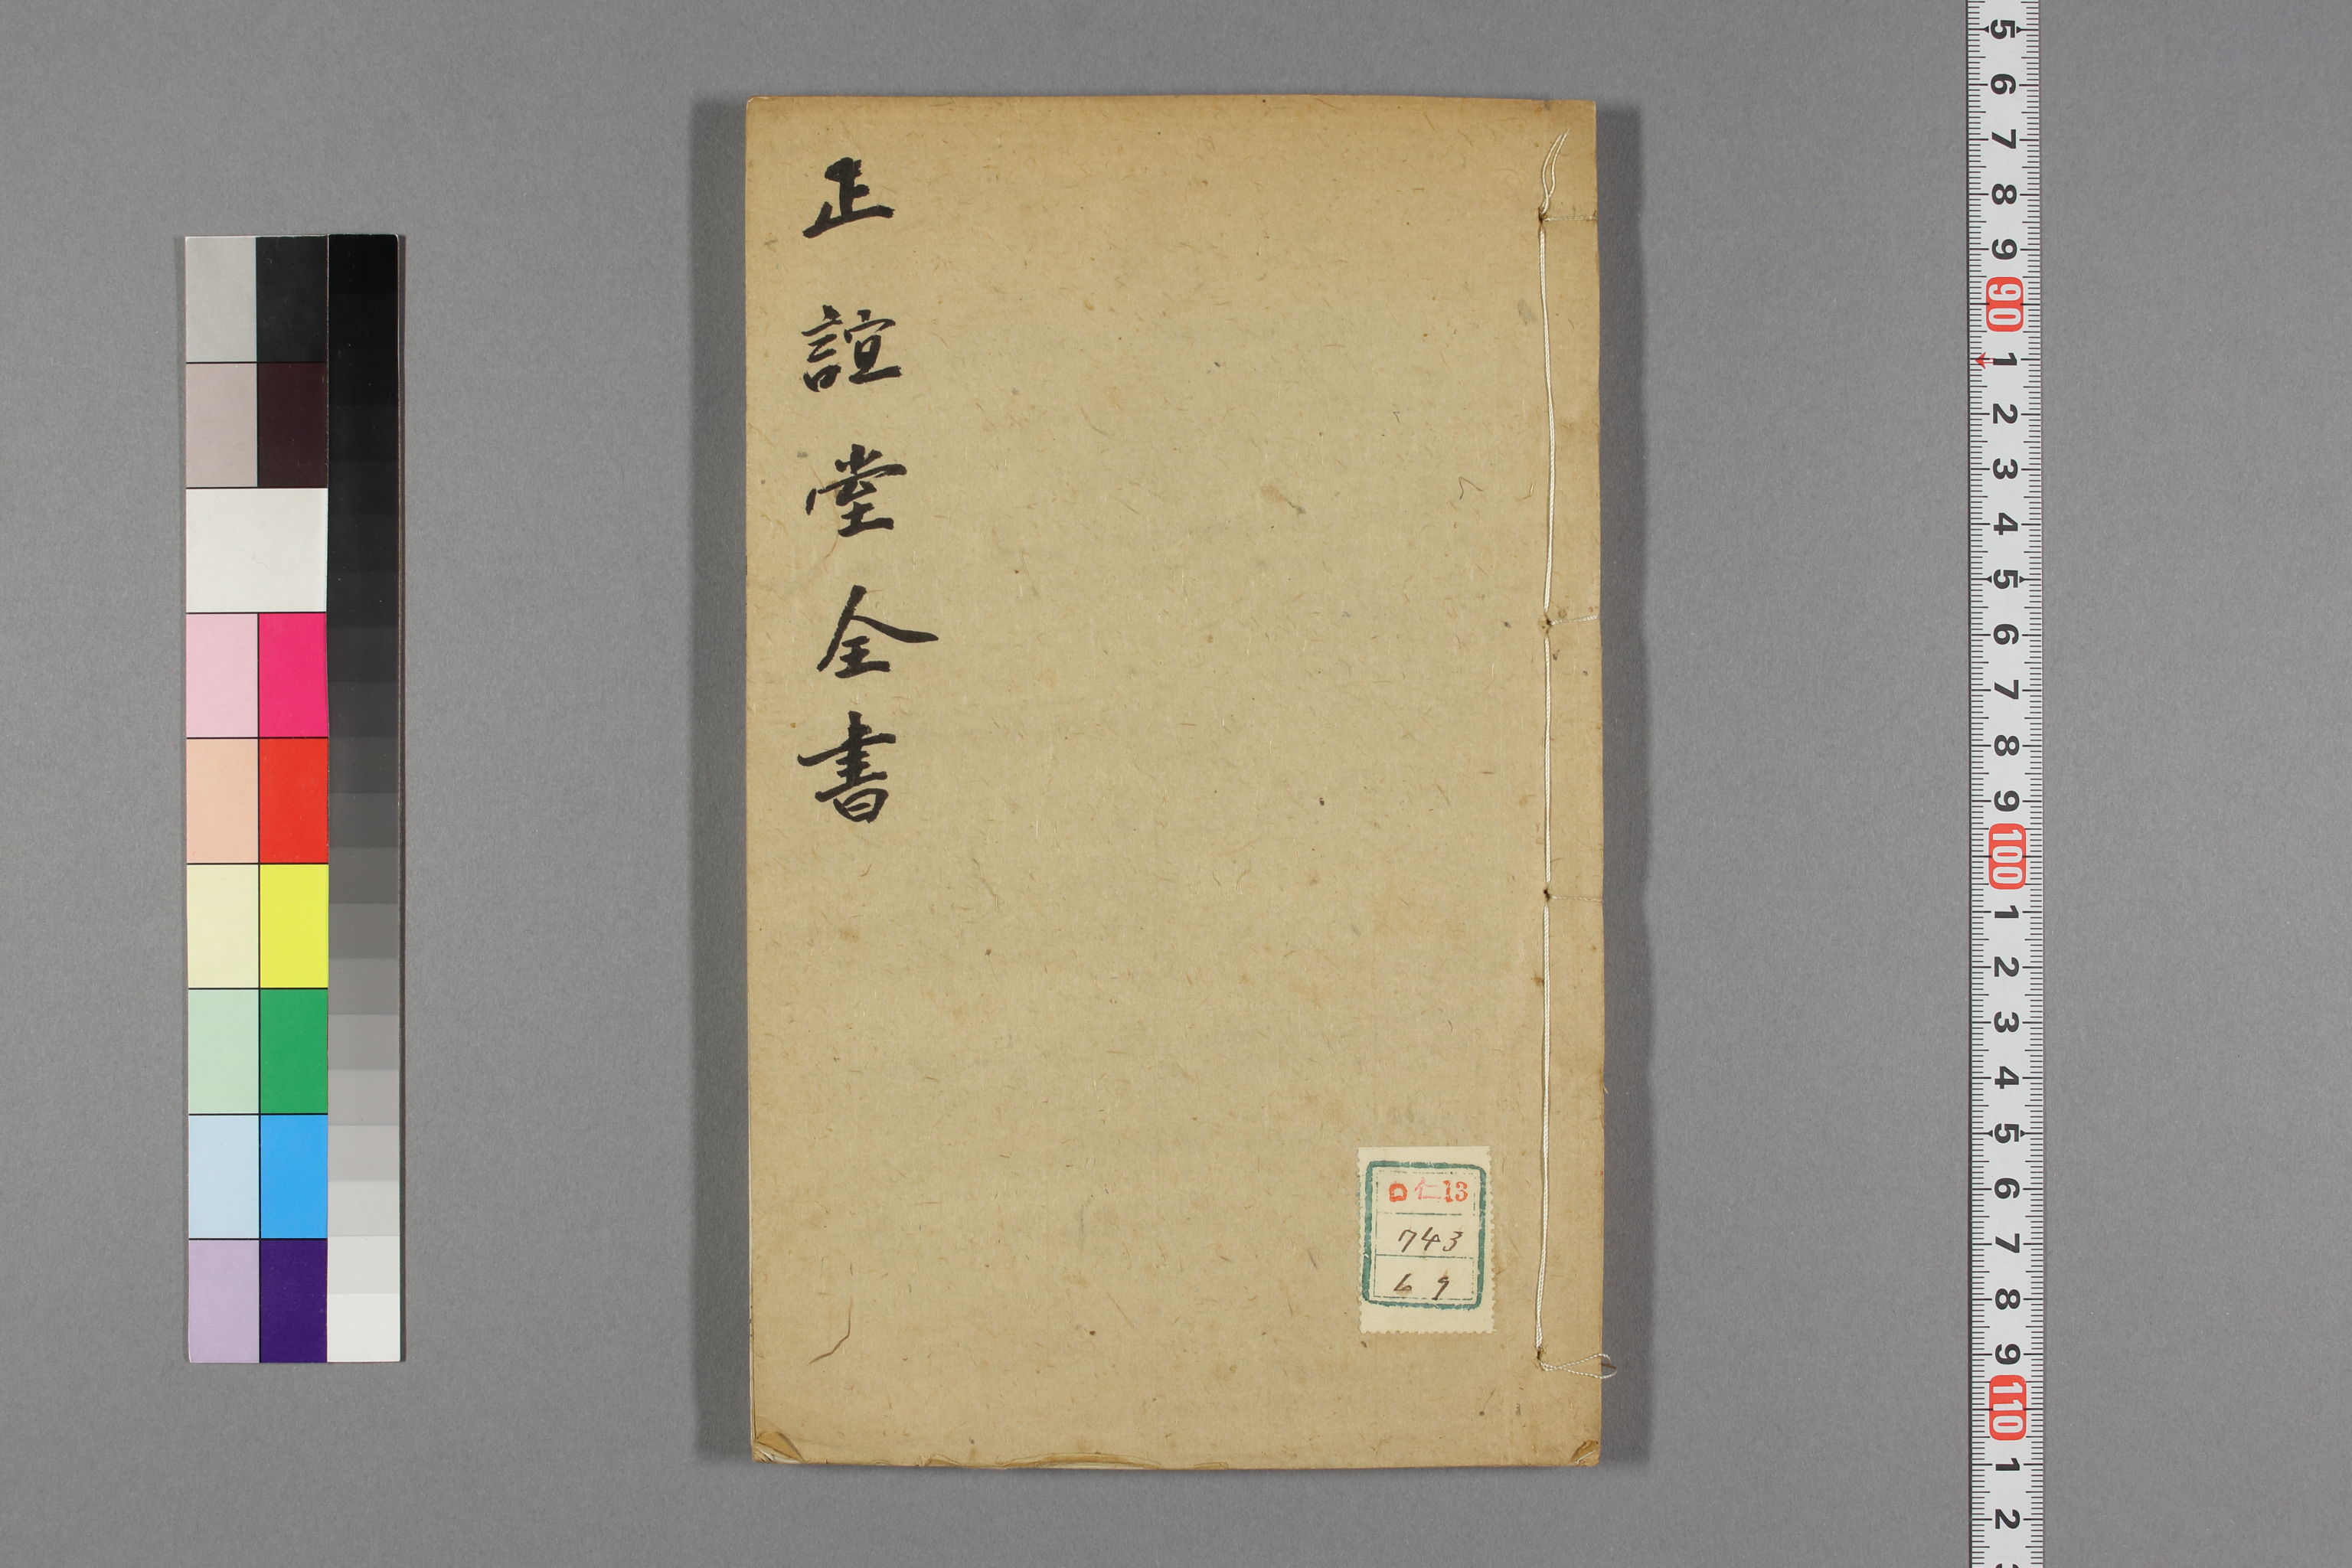 正誼堂全書
口仁13
743
69
5
6
7
8
9
90
1
2
3
4
5
6
7
8
9
100
1
2
3
4
5
6
7
8
9
110
1
2